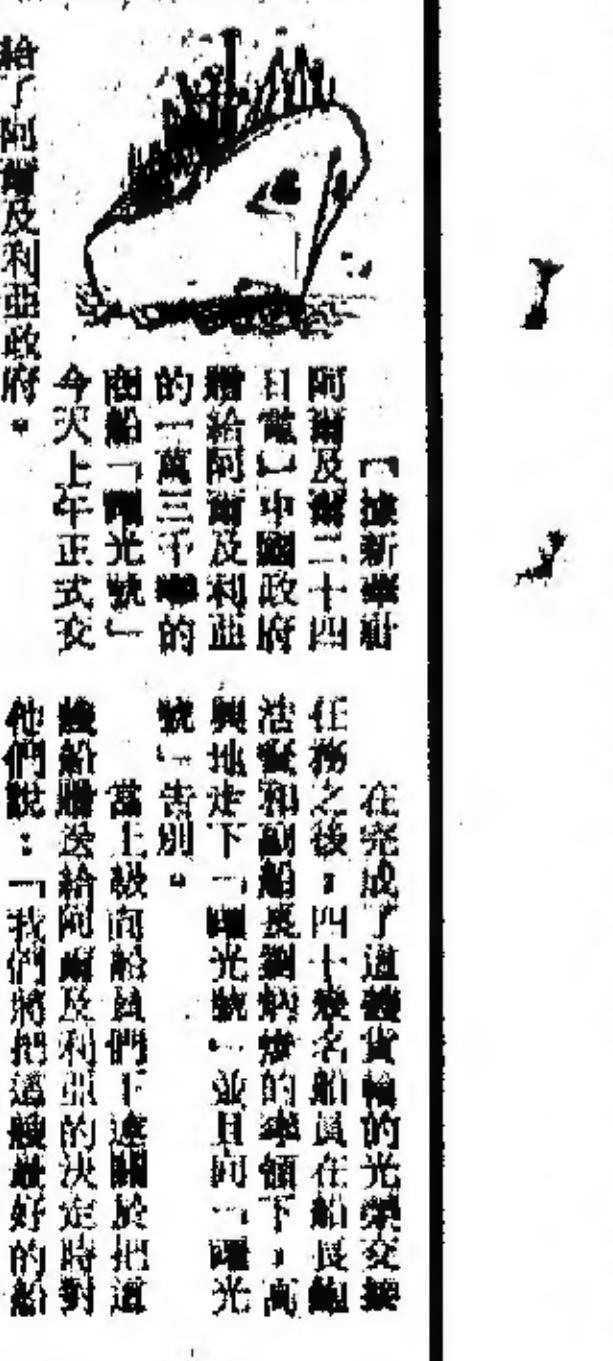 【據新華社
阿爾及爾二十四
日電】中國政府
贈給阿爾及利亞
的一萬三千噸的
商船「曙光號」
今天上午正式交
給了阿爾及利亞政府。
在完成了這艘貨輪的光榮交接
任務之後，四十幾名船員在船長鮑
浩賢和副船長劉炳煥的率領下，高
興地走下「曙光號」並且同「曙光
號」告別。
當上級向船員們下達關於把這
艘船贈送給阿爾及利亞的決定時對
他們說：「我們將把這艘最好的船